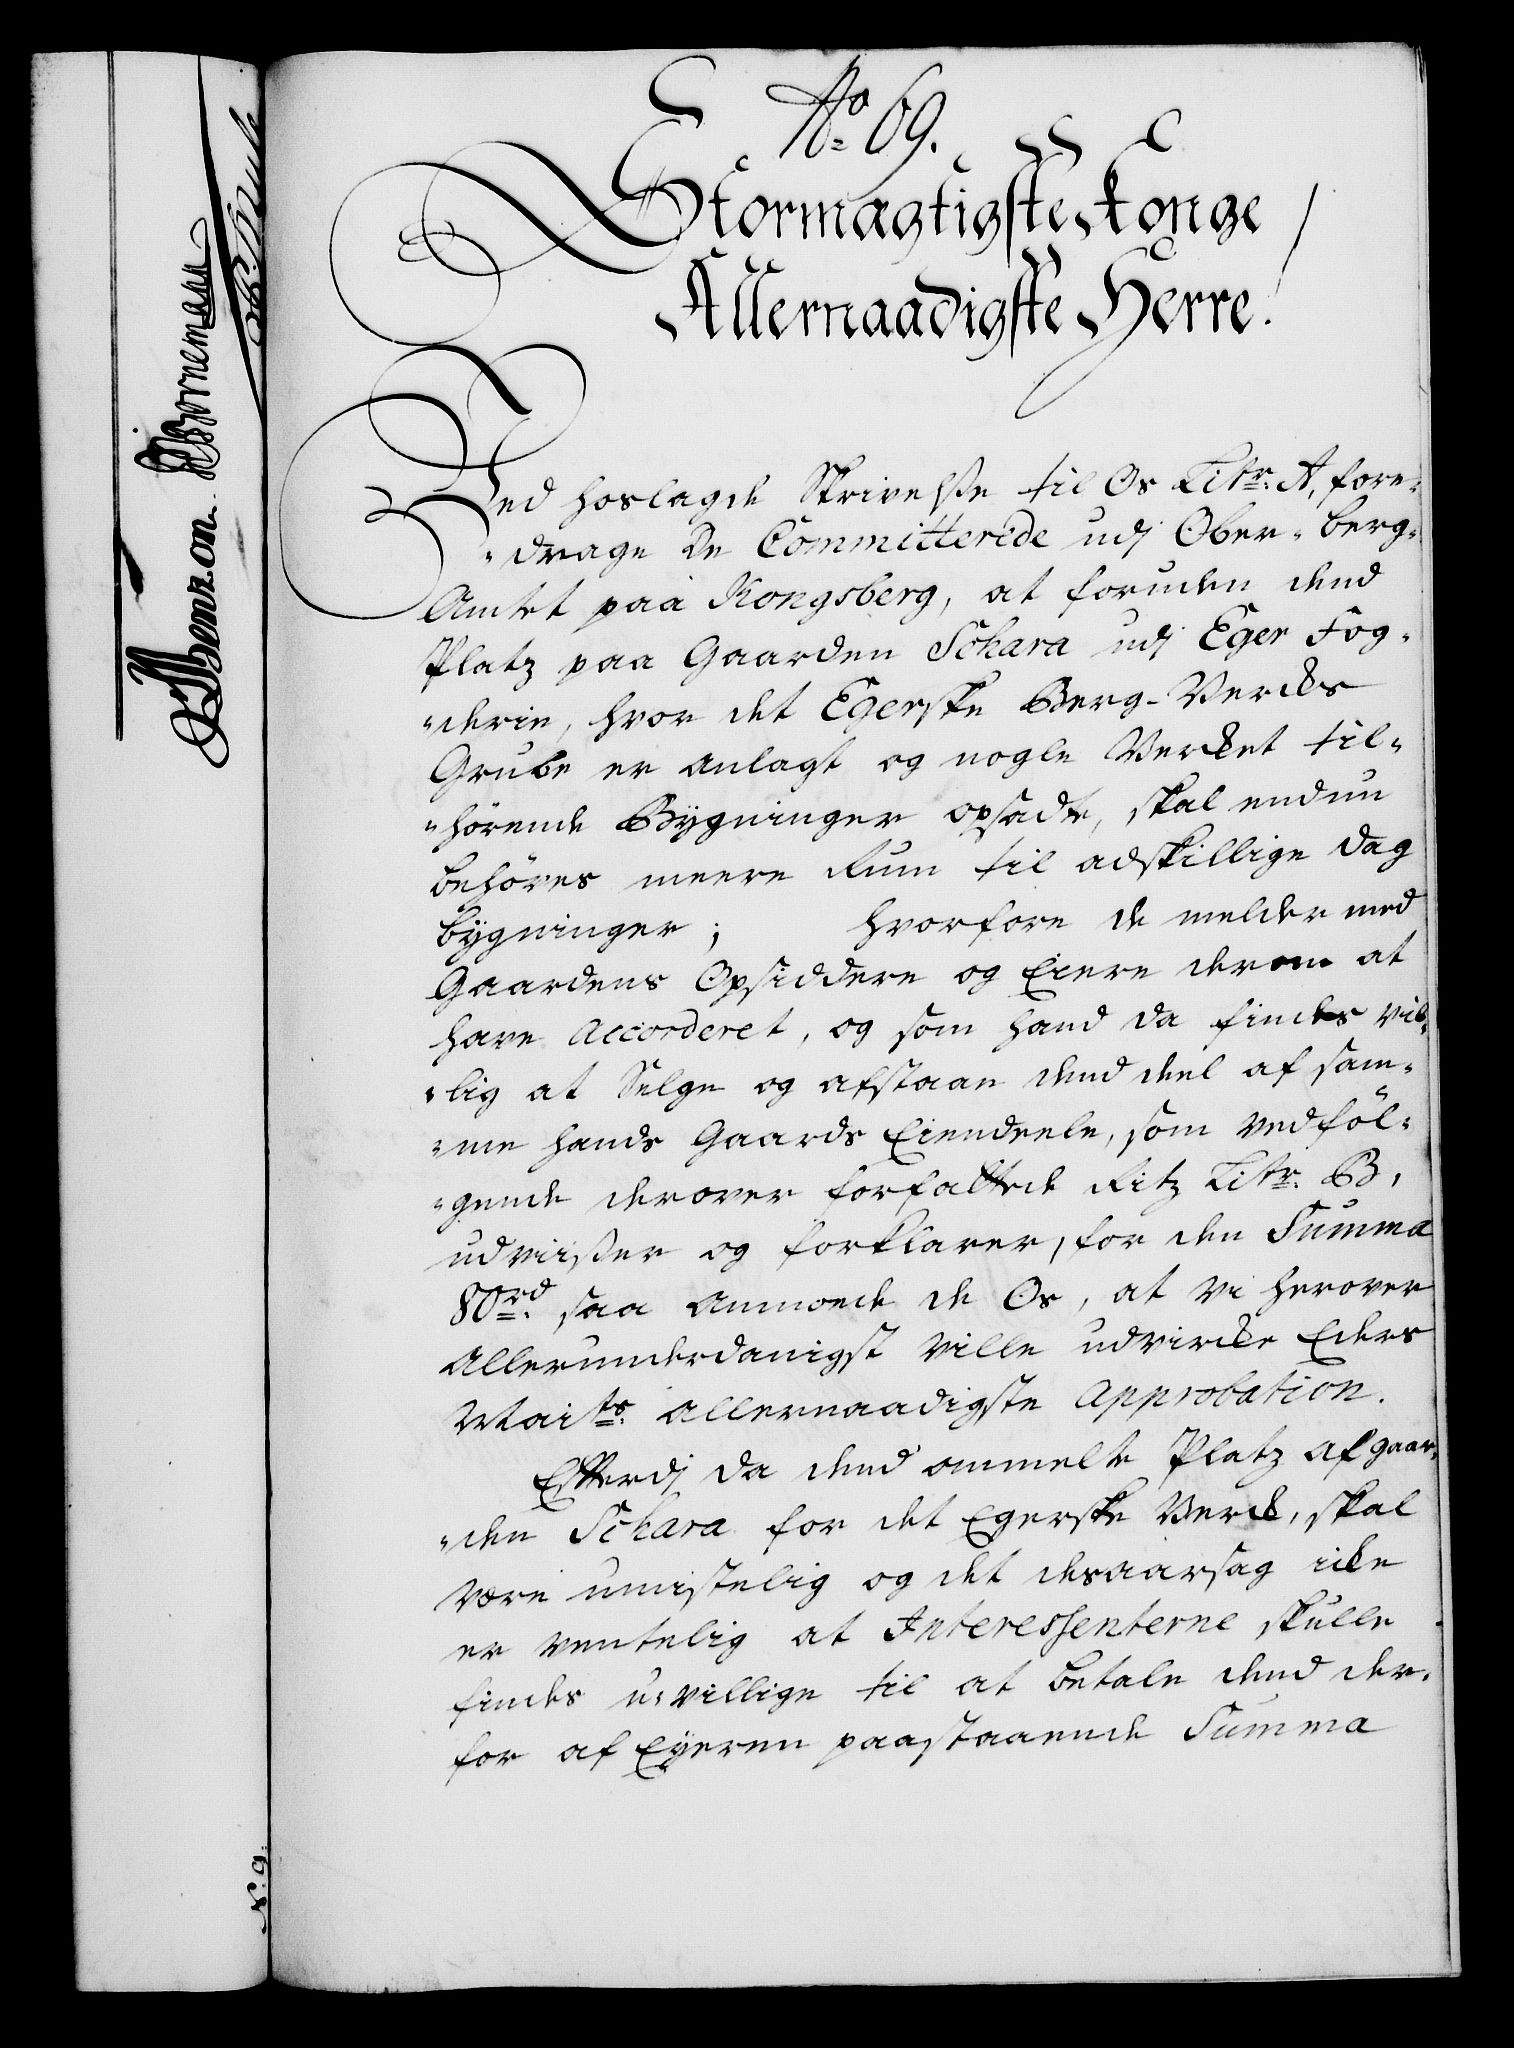 No 69.
Stormagtigste Konge
Allernaadigste Herre!
Ved hoslagde Skrivelsse til Os Litr. A, fore-
-drage De Committerede udj Ober-berg-
Amtet paa Kongsberg, at foruden dend
Platz paa Gaarden Schara udj Eger Fog-
-derie, hvor det Egerske Berg-Vercks
Grube er anlagt og nogle Vercket til-
-hörende Bygninger opsadte, skal endnu
behöves meere Rum til adskillige dag
bygninger; hvorfore de melder med
Gaardens Opsiddere og Eiere derom at
have Accorderet, og som hand da findes vil-
-lig at Selge og afstaae dend deel af sam-
-me hands Gaards Eiendeele, som vedföl-
-gende derover forfattede Ritz Litr. B,
udviisser og forklarer, for den Summa
80rd. saa anmode de Os, at vi herover
Allerunderdanigst ville udvircke Eders
Maits. allernaadigste Approbation.
Efterdj da dend ommelte Platz af gaar-
-den Schara for det Egerske Verck, skal
være umistelig og det desaarsag icke
er ventelig at Interessenterne skulle
findes u-villige til at betale dend der-
for af Eyeren paastaaende Summa
Benzon.
Bornemann
N. 9.